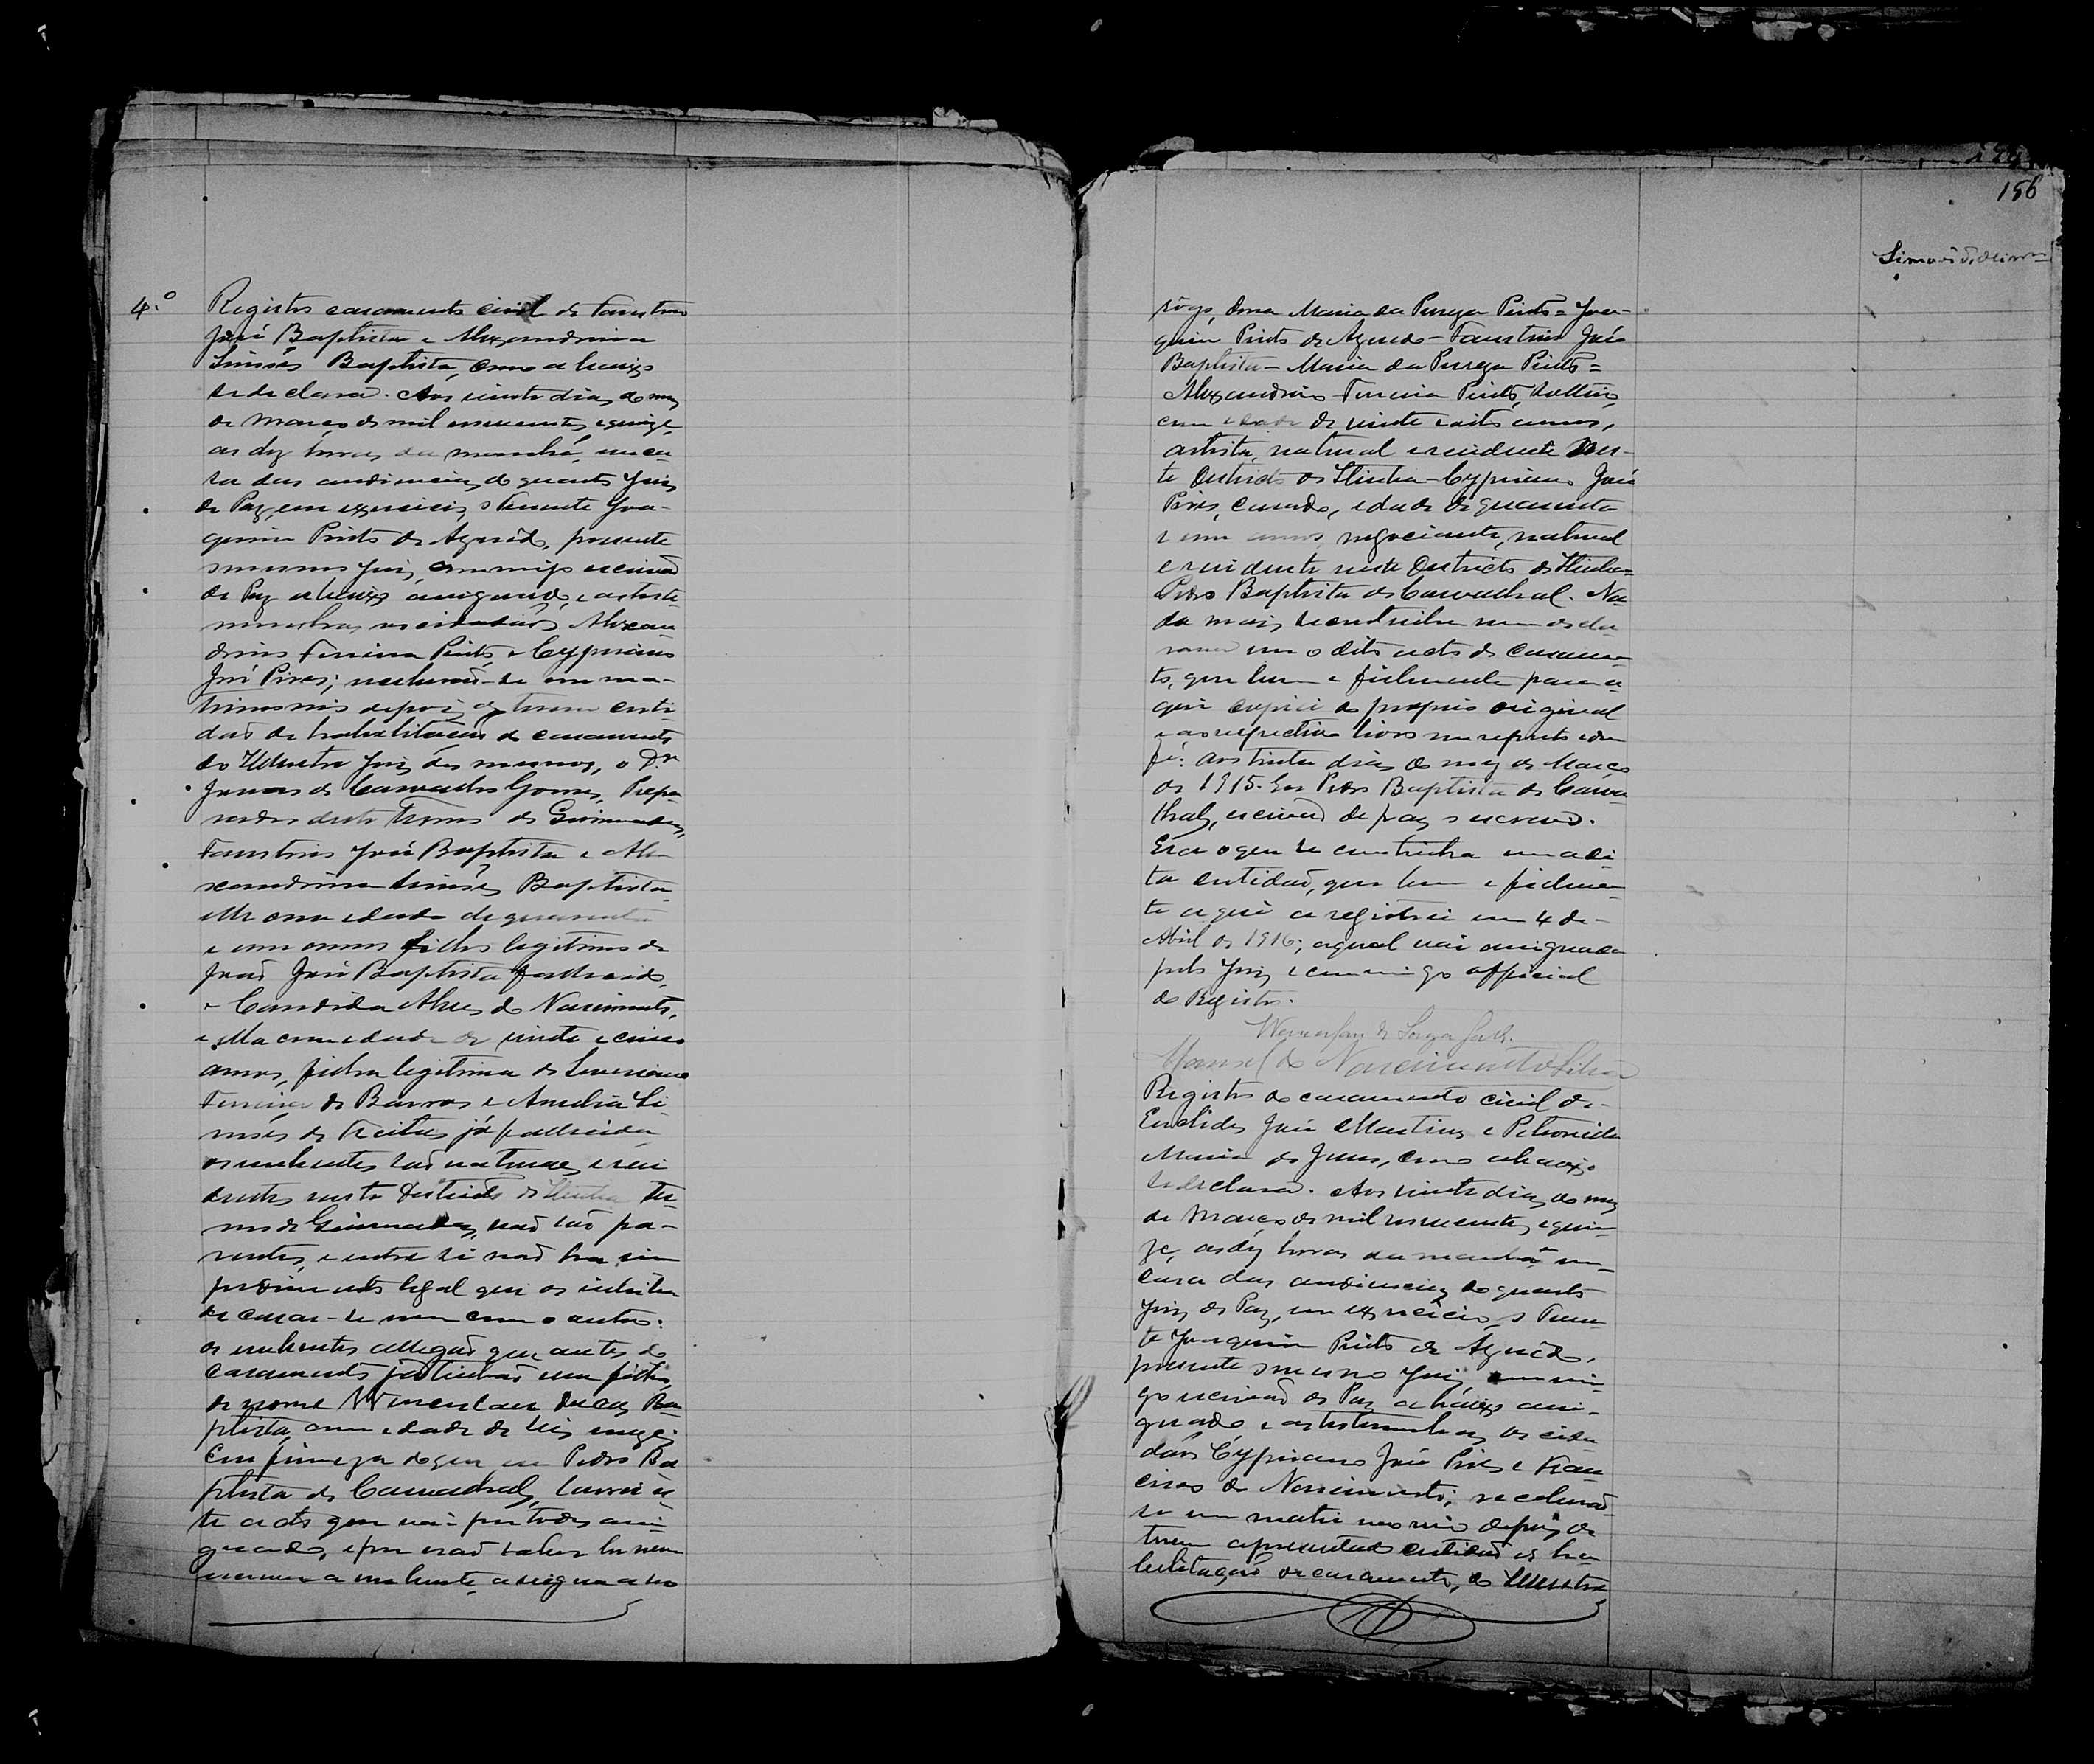 4.º
Registro casamento civil de Faustino
José Baptista e Alexandrina
Simões Baptista, como abaixo
se declara. Aos vinte dias do mez
de Março de mil novecentos e quinze,
as dez horas da manhã, em ca-
sa das audiencias do quarto Juiz
de Paz, em exercicio, o Tenente Joa-
quim Pinto de Azevedo, presente
o mesmo Juiz, commigo escrivaõ
de Paz abaixo assignado, e as teste-
munhas os cidadãos Alexan-
drino Ferreira Pinto, e Cypriano
José Pires; receberaõ-se em ma-
trimonio depois de terem certi-
daõ de habilitaçaõ de casamento
do Illustre Juiz dos mesmos, o Dr.
de Carvalho Gomes, Prepa-
rador deste Termo de
Faustino José Baptista e Ale-
xandrina Simões Baptista
elle com edade de quarenta
e um annos filho legitimo de
João José Baptista fallecido,
e Candida Alves do Nascimento,
e ella com edade de vinte e cinco
annos, filha legitima de Severiano
Ferreira de Barros e Amelia Si-
mões de Freitas já fallecida
os nubentes saõ naturaes e resi-
dentes neste Districto de Ter-
mo de naõ saõ pa-
rentes, e entre si naõ ha im-
pedimento legal que os inhiba
de casar-se um com o outro.
os nubentes allegaõ que antes do
casamento já tinhaõ um filho,
de nome Wenceslau Ba-
ptista, com edade de seis mezes.
Em firmeza do que eu Pedro Ba-
ptista de Carvalhal, lavrei es-
te acto que vai por todos assi-
gnado, e por naõ saber ler nem
escrever a nubente, assigna a seu
156
rôgo, dona Maria da Pureza Pinto = Joa-
quim Pinto de Azevedo - Faustino José
Baptista - Maria da Pureza Pinto =
Alexandrino Ferreira Pinto, solteiro,
com edade de vinte e oito annos,
artista, natural e residente nes-
te Districto de - Cypriano José
Pires, casado, edade de quarenta
e um annos, negociante, natural
e residente neste Districto de
Pedro Baptista de Carvalhal. Na-
da mais se continha nem decla-
rava em o dito acto de casamen-
to, que bem e fielmente para a-
qui copiei do proprio original
e ao respectivo livro me reporto e dou
fé: aos trinta dias do mez de Março
de 1915. Eu Pedro Baptista de Carva-
lhal, escrivaõ de paz o escrevi.
Era o que se continha em a di-
ta certidaõ, que bem e fielmen-
te aqui a registrei em 4 de
Abril de 1916; a qual vai assignada
pelo Juiz e commigo official
do Registro.
Manoel do Nascimento Silva
Registro do casamento civil de
Euclides José Martins e Petronilla
Maria de Jesus, como abaixo
se declara. Aos vinte dias do mez
de Março de mil novecentos e quin-
ze, as dez horas da manhã em
casa das audiencias do quarto
Juiz de Paz, em exercicio, o Tenen-
te Joaquim Pinto de Azevedo,
presente o mesmo Juiz commi-
go escrivaõ de Paz abaixo assi-
gnado e as testemunhas os cida-
dãos Cypriano José Pires e Fran-
cisco do Nascimento; receberaõ-
se em matrimonio depois de
terem apresentado certidaõ de ha-
bilitaçaõ de casamento, do Illustre